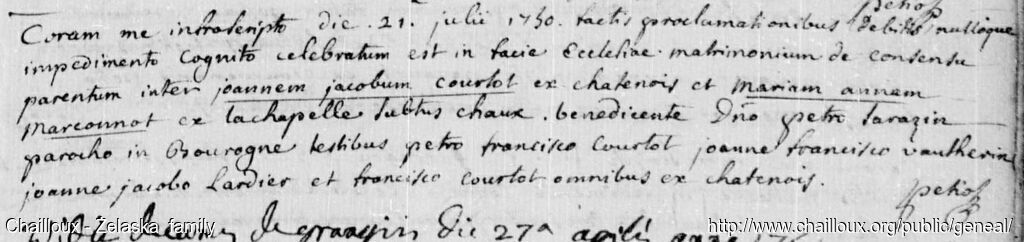 petiot
Coram me infrascripto die .21. julii 1730. factis proclamationibus debitis nulloque
impedimento cognito celebratum est in facie Ecclesiae matrimonium de consensu
parentum inter joannem jacobum courtot ex chatenois et mariam annem
marconnot ex lachapelle subtus chaux . benedicente Dno petro sarazin
parocho in Bourogne testibus petro francisco Courtot joanne francisco vautherin
joanne jacobo Lardier et francisco courtot omnibus ex chatenois.
petiot
die 27a aprilis
Chailloux - Zelaska family
http://www.chailloux.org/public/geneal/